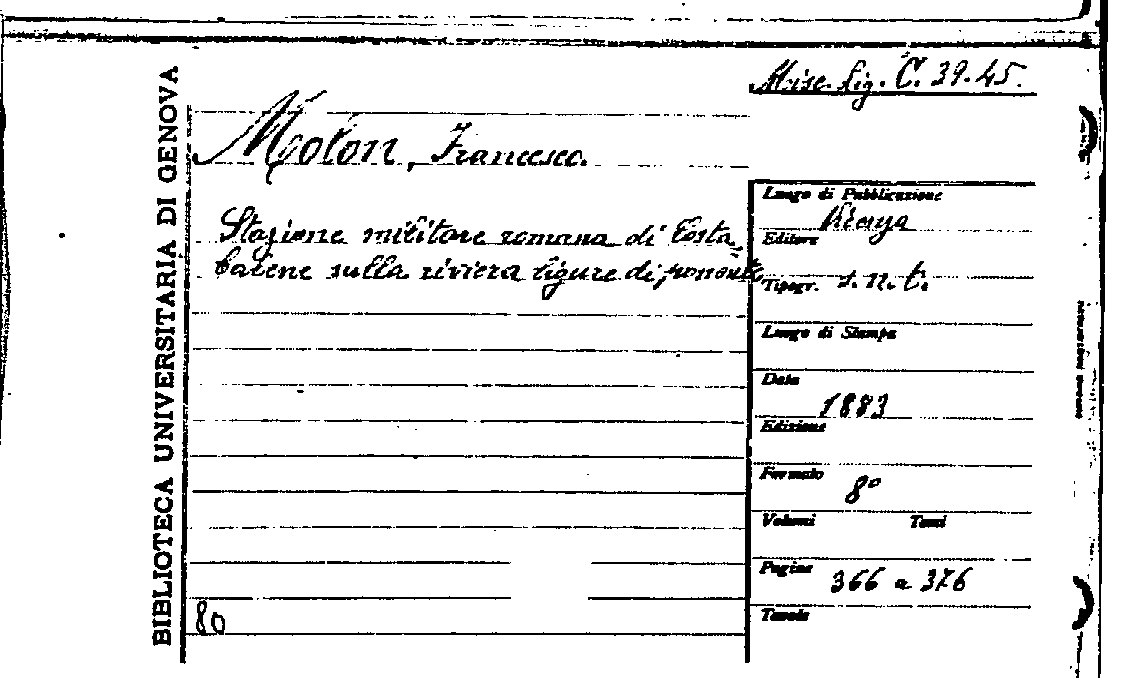 BIBLIOTECA UNIVERSITARIA DI GENOVA
Misc. Lig. C. 39.45.
Molon, Francesco.
Stazione militare romana di Costa
baiene sulla riviera ligure di ponente
Luogo di Pubblicazione
Editore
Tipogr. s. n. t.
Luogo di Stampa
Data
1883
Edizione
Formato
8°
Volumi Tomi
Pagine 366 a 376
Tavole
80